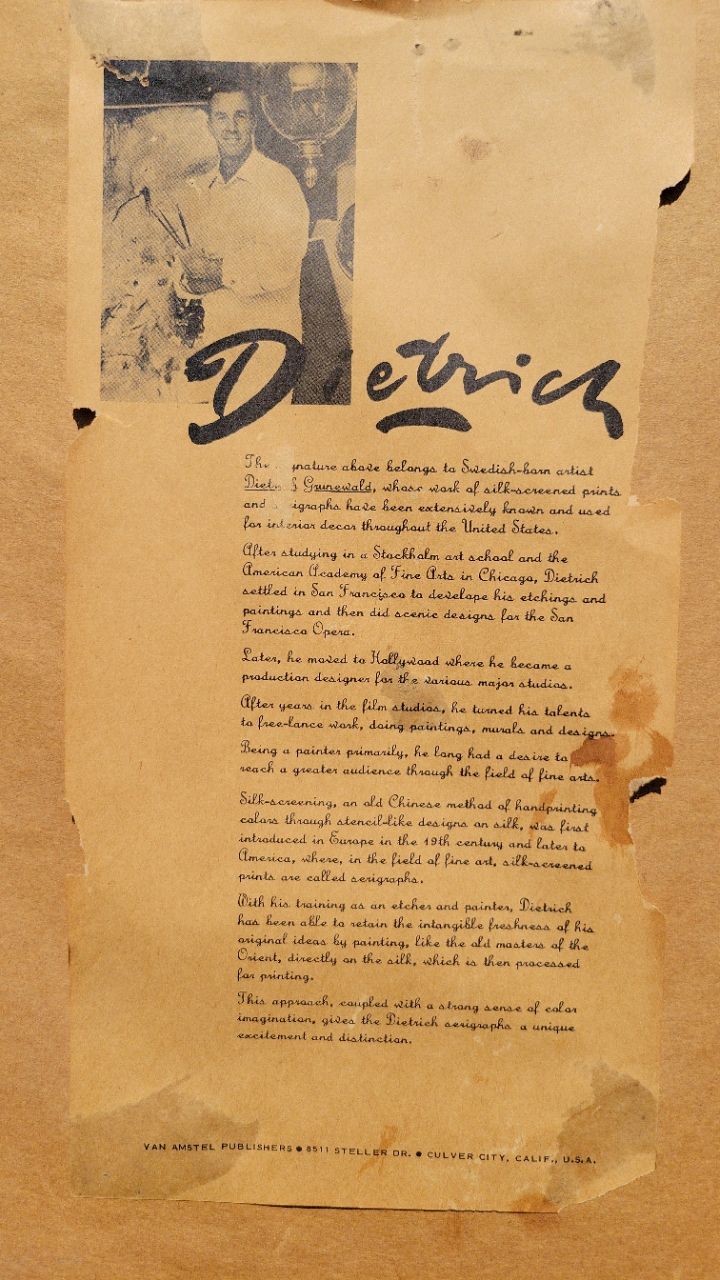 Dietrich
above belongs to Swedish-born artist
Grunewald, whose work of silk-screened prints
and have been extensively known and used
for interior decor throughout the United States.
After studying in a Stockholm art school and the
American Academy of Fine Arts in Chicago, Dietrich
settled in San Francisco to develope his etchings and
paintings and then did scenic designs for the San
Francisco Opera.
Later, he moved to Hollywood where he became a
production designer for the various major studios.
After years in the film studios, he turned his talents
to free-lance work, doing paintings, murals and designs.
Being a painter primarily, he long had a desire to
reach a greater audience through the field of fine arts.
Silk-screening, an old Chinese method of handprinting
colors through stencil-like designs on silk, was first
introduced in Europe in the 19th century and later to
America, where, in the field of fine art, silk-screened
prints are called serigraphs.
With his training as an etcher and painter, Dietrich
has been able to retain the intangible freshness of his
original ideas by painting, like the old masters of the
Orient, directly on the silk, which is then processed
for printing.
This approach, coupled with a strong sense of color
imagination, gives the Dietrich serigraphs a unique
excitement and distinction.
VAN AMSTEL PUBLISHERS ● 8511 STELLER DR. ● CULVER CITY, CALIF., U.S.A.